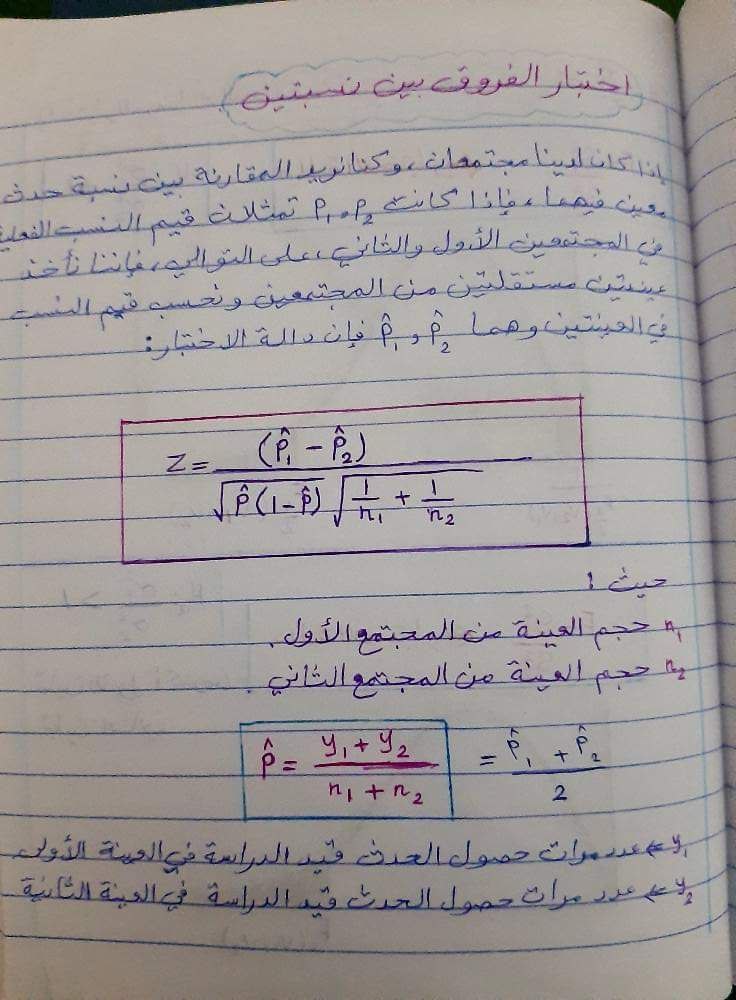 اختبار الفروق بين نسبتين
إذا كان لدينا مجتمعان، وكنا نريد المقارنة بين نسبة حدث
معين فيهما، فإذا كانت P₁ و P₂ تمثلان قيم النسب الفعلية
في المجتمعين الأول والثاني، على التوالي، فإننا نأخذ
عينتين مستقلتين من المجتمعين ونحسب قيم النسب
في العينتين وهما P̂₁ و P̂₂ فإن دالة الاختبار:
Z = (P̂₁ - P̂₂) / √P̂(1-P̂) √1/n₁ + 1/n₂
حيث :
n₁ حجم العينة من المجتمع الأول.
n₂ حجم العينة من المجتمع الثاني.
P̂ = y₁ + y₂ / n₁ + n₂ = P̂₁ + P̂₂ / 2
y₁ ← عدد مرات حصول الحدث قيد الدراسة في العينة الأولى
y₂ ← عدد مرات حصول الحدث قيد الدراسة في العينة الثانية